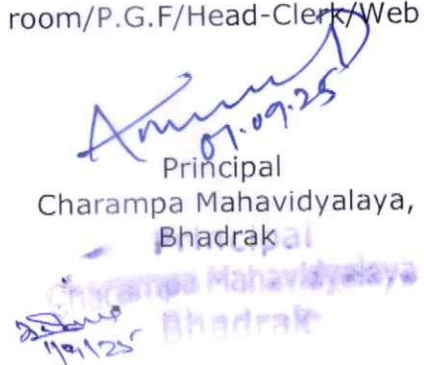 room/P.G.F/Head-Clerk/Web
01.09.25
Principal
Charampa Mahavidyalaya,
Bhadrak
Principal
Charampa Mahavidyalaya
Bhadrak
1/9/25